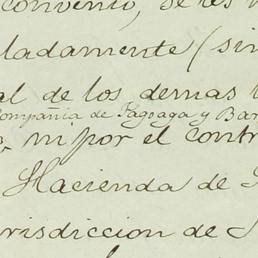 convenio, se les
ladamente (sin
al de los demas
Compañia de Pagoaga y Bar
ni por el contr
Hacienda de
risdiccion de